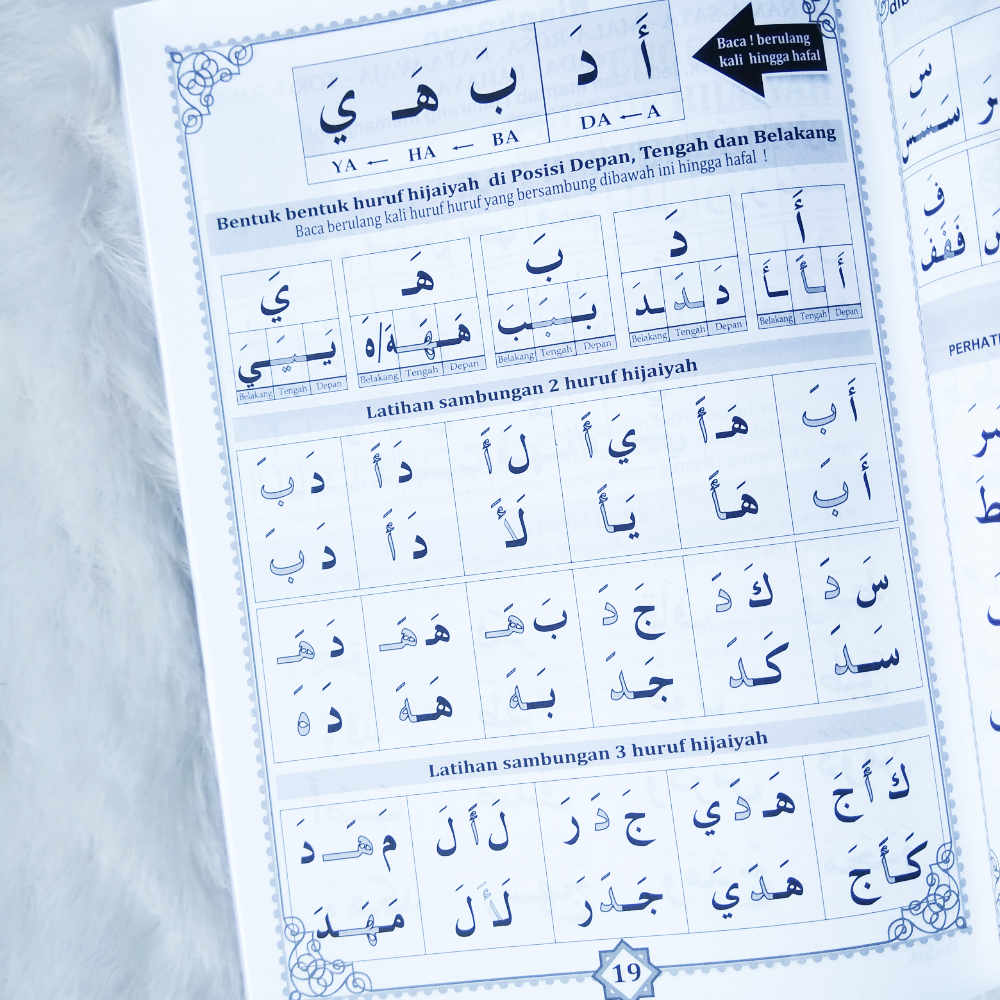 Baca ! berulang
kali hingga hafal
أَ دَ بَ هَـ يَ
A ← DA BA ← HA ← YA
Bentuk bentuk huruf hijaiyah di Posisi Depan, Tengah dan Belakang
Baca berulang kali huruf huruf yang bersambung dibawah ini hingga hafal !
أَ دَ بَ هَـ يَ
أَ ـأَـ ـأَ دَ ـدَـ ـدَ بَـ ـبَـ ـبَ هَـ ـهَـ ـهَ/هَ يَـ ـيَـ ـيَ
Depan Tengah Belakang Depan Tengah Belakang Depan Tengah Belakang Depan Tengah Belakang Depan Tengah Belakang
Latihan sambungan 2 huruf hijaiyah
أَ بَ هَـ أَ يَ أَ لَ أَ دَ أَ دَ بَ
أَ بَ هَأَ يَأَ لَأَ دَ أَ دَ بَ
سَ دَ كَ دَ جَ دَ بَ هَـ هَـ هَـ دَ هَـ
سَدَ كَدَ جَدَ بَهَ هَهَ دَ هَ
Latihan sambungan 3 huruf hijaiyah
كَ أَ جَ هَـ دَ يَ جَ دَ رَ لَ أَ لَ مَ هَـ دَ
كَأَ جَ هَدَ يَ جَدَ رَ لَأَ لَ مَهَدَ
19
سَ
سَسَسَ
فَ
فَفَفَ
PERHATI